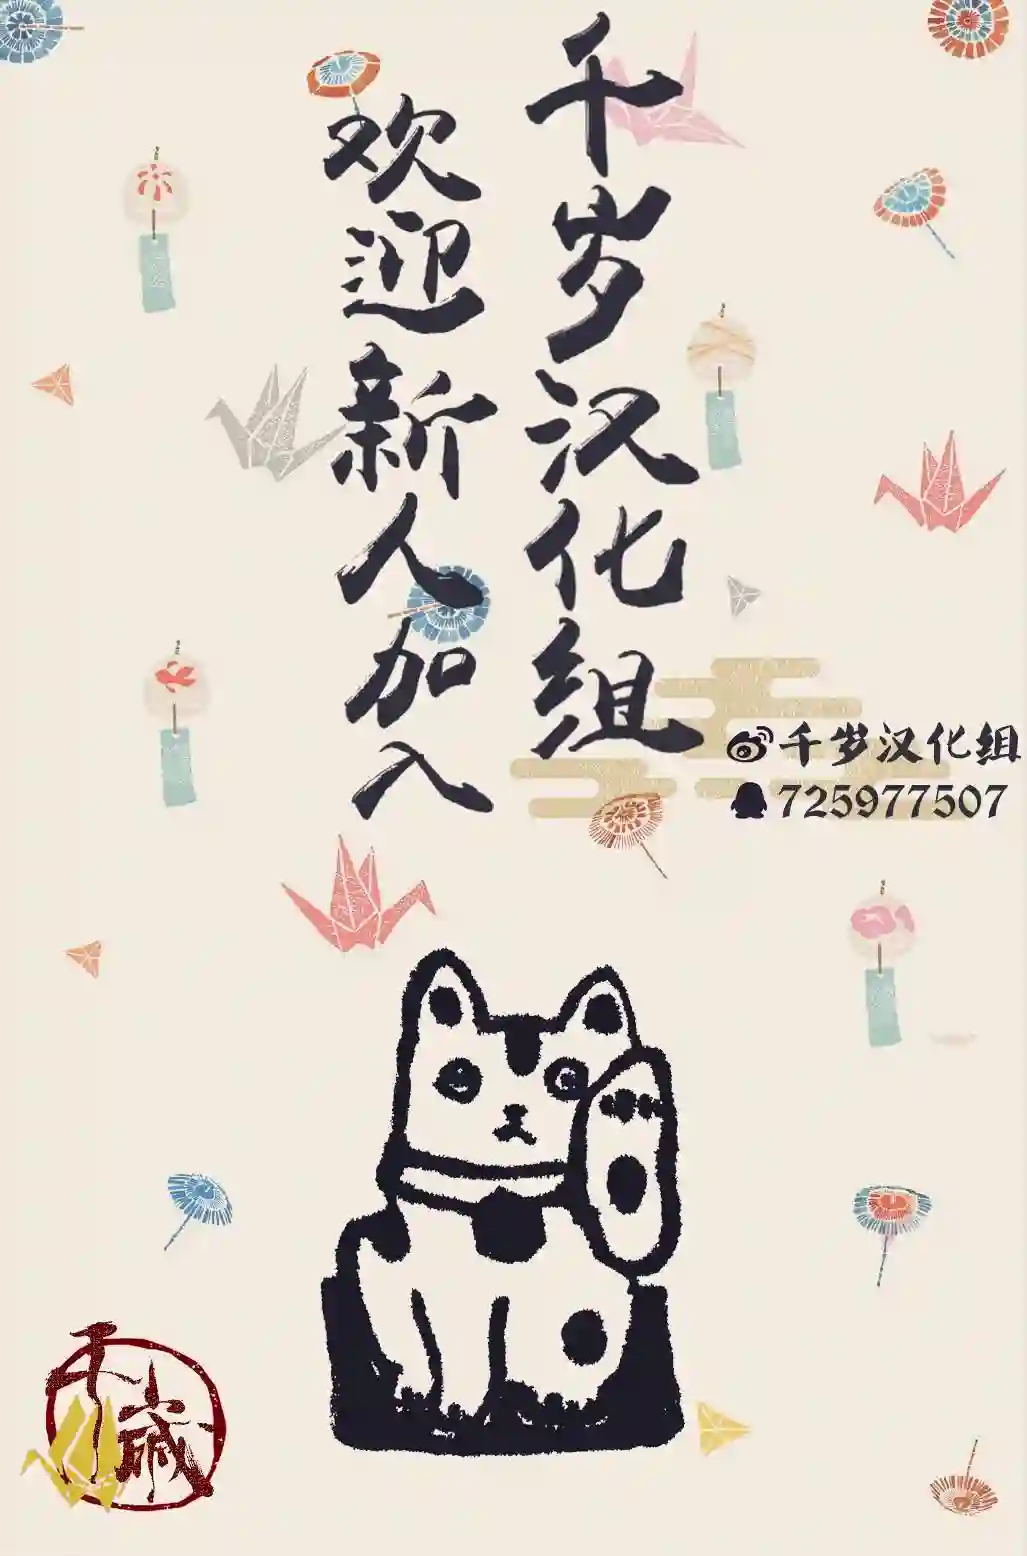 千岁汉化组
欢迎新人加入
千岁汉化组
725977507
千歳